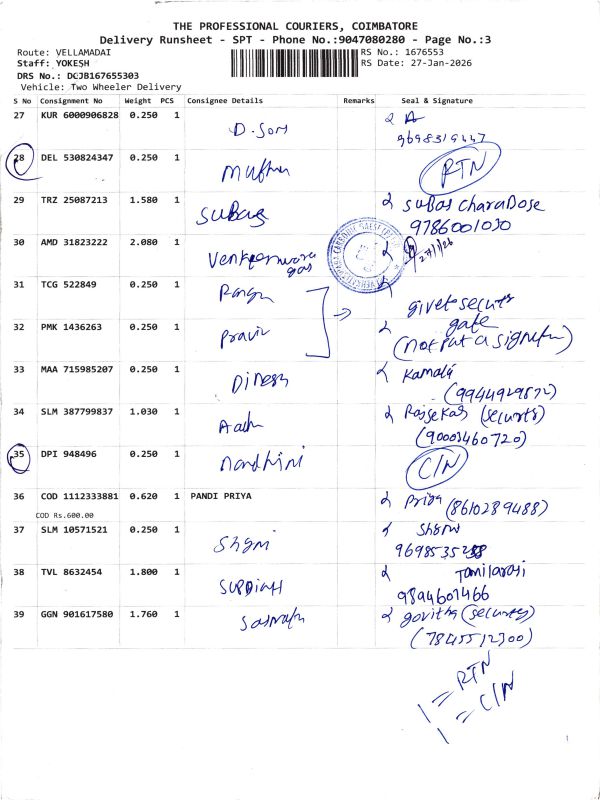 THE PROFESSIONAL COURIERS, COIMBATORE
Delivery Runsheet - SPT - Phone No.:9047080280 - Page No.:3
Route: VELLAMADAI
RS No.: 1676553
Staff: YOKESH
RS Date: 27-Jan-2026
DRS No.: DCJB167655303
Vehicle: Two Wheeler Delivery
S No Consignment No Weight PCS Consignee Details Remarks Seal & Signature
27 KUR 6000906828 0.250 1 D.Son
9698319447
28 DEL 530824347 0.250 1 RTN
29 TRZ 25087213 1.580 1 Subas Subas CharaDose
9786001030
30 AMD 31823222 2.080 1 gas 27/1/26
31 TCG 522849 0.250 1
gate
32 PMK 1436263 0.250 1 Pravin
(Not Put a
33 MAA 715985207 0.250 1 Dinesh Kamala
34 SLM 387799837 1.030 1
35 DPI 948496 0.250 1 Nandhini C/N
36 COD 1112333881 0.620 1 PANDI PRIYA Priya (8610289488)
COD Rs.600.00
37 SLM 10571521 0.250 1
38 TVL 8632454 1.800 1 Tamilarasi
9894601466
39 GGN 901617580 1.760 1
(7845512300)
1 = RTN
1 = C/N